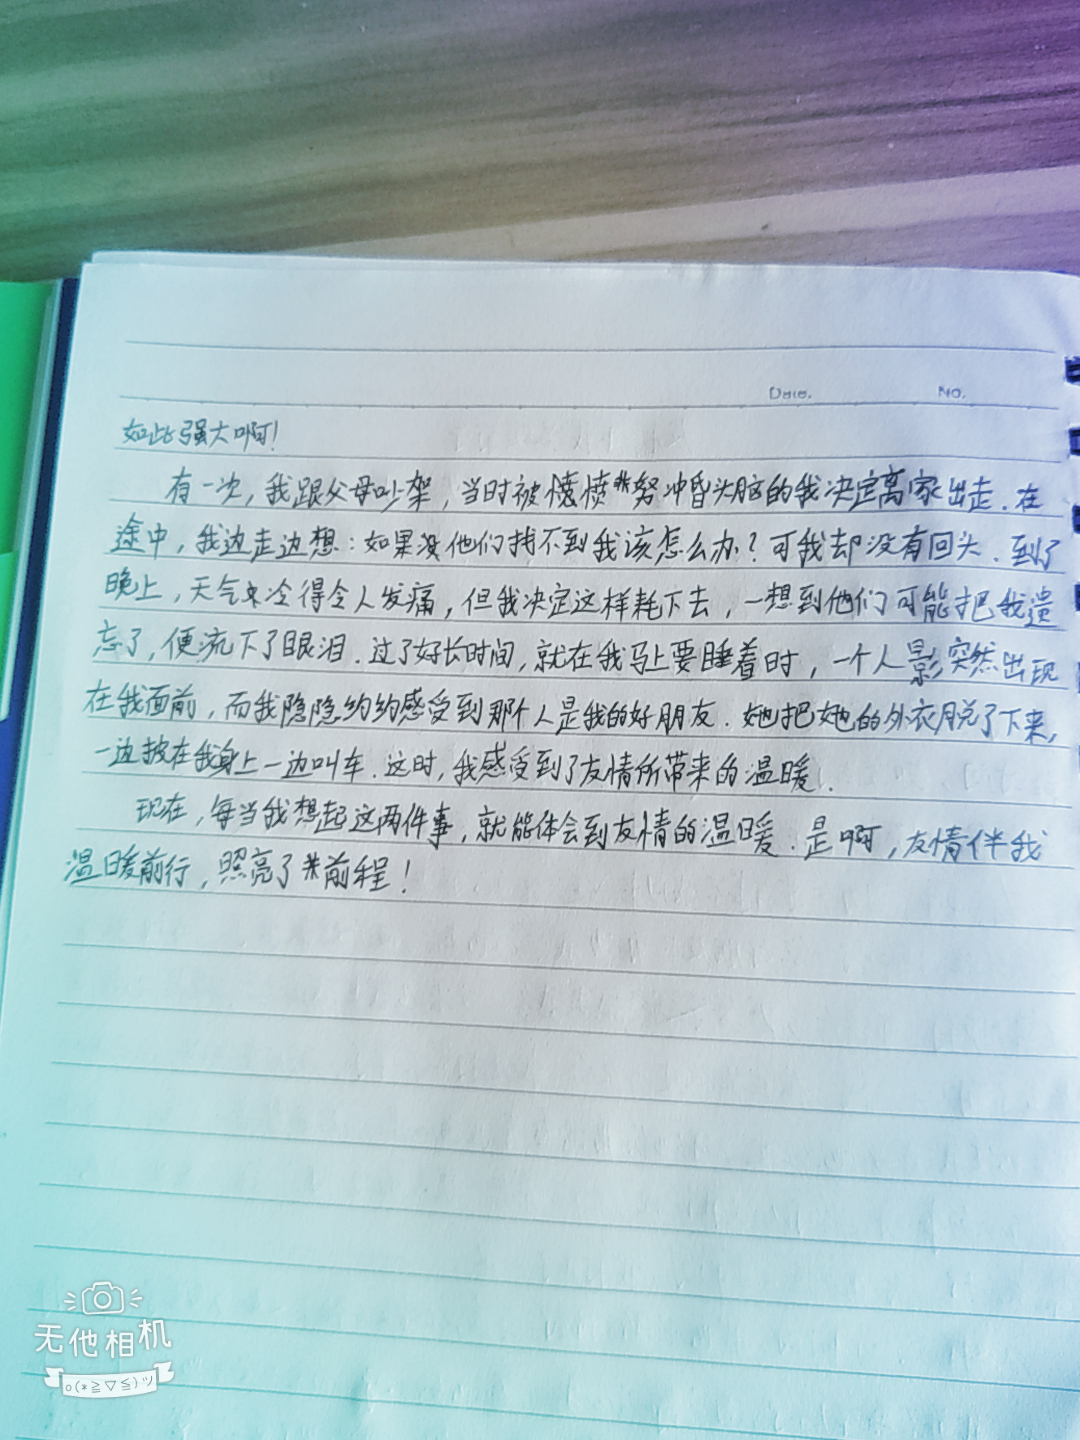 Date. No.
如此强大啊!
有一次,我跟父母吵架,当时被愤努冲昏头脑的我决定离家出走.在
途中,我边走边想:如果没他们找不到我该怎么办?可我却没有回头.到了
晚上,天气冷得令人发痛,但我决定这样耗下去,一想到他们可能把我遗
忘了,便流下了眼泪.过了好长时间,就在我马上要睡着时,一个人影突然出现
在我面前,而我隐隐约约感受到那个人是我的好朋友.她把她的外衣脱了下来,
一边披在我身上一边叫车.这时,我感受到了友情所带来的温暖.
现在,每当我想起这两件事,就能体会到友情的温暖.是啊,友情伴我
温暖前行,照亮了前程!
无他相机
o(*≧▽≦)ツ